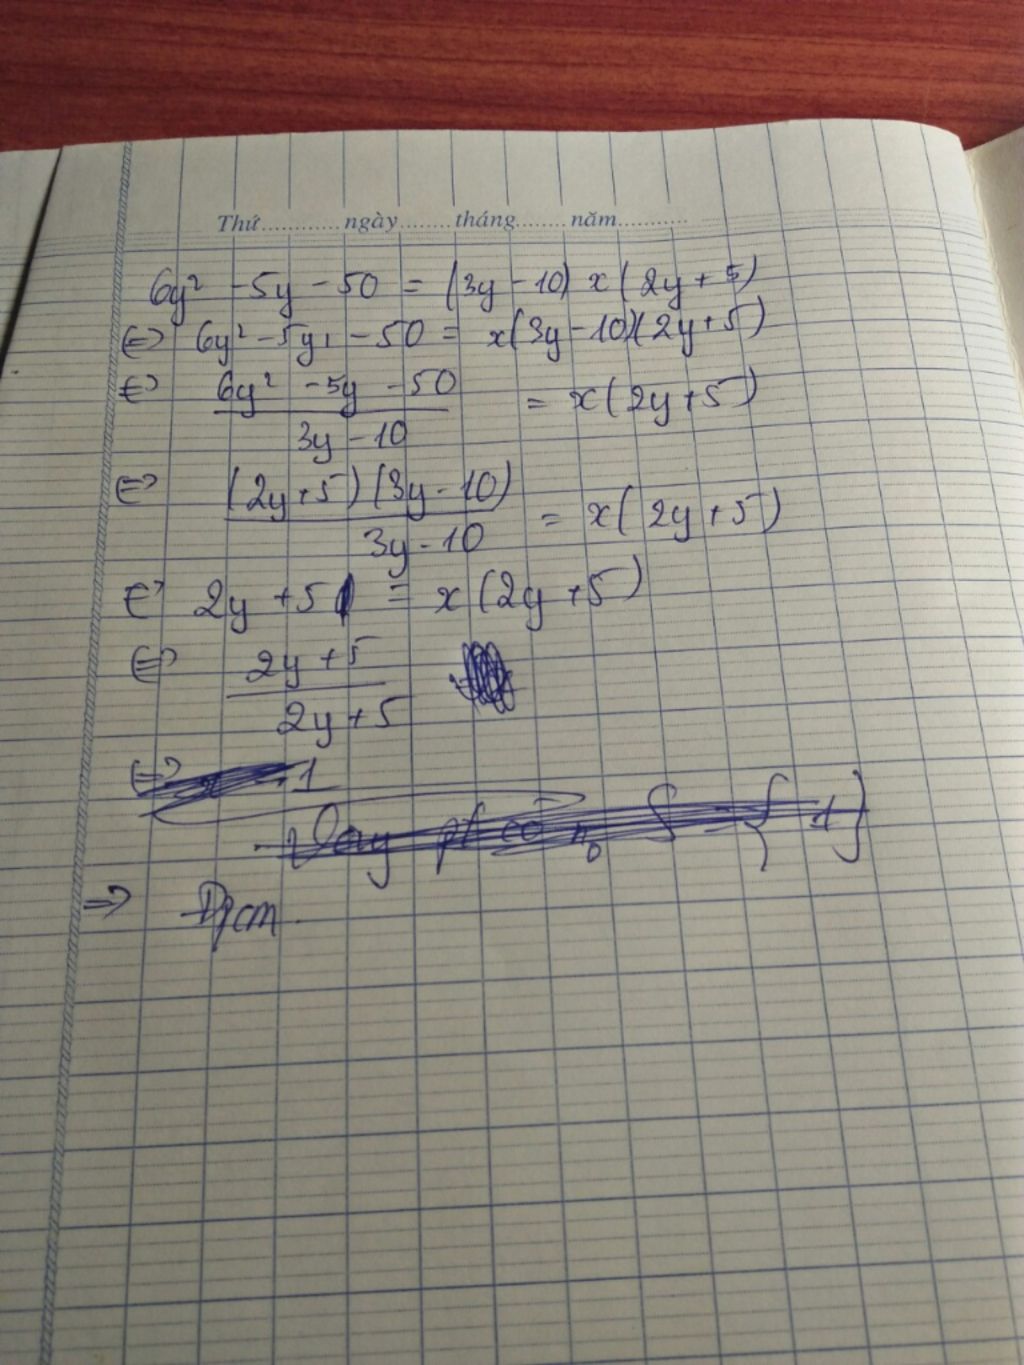 Thứ............ngày........tháng........năm...........
6y² - 5y - 50 = (3y - 10) x (2y + 5)
⇔ 6y² - 5y - 50 = x(3y - 10)(2y + 5)
⇔ \frac{6y² - 5y - 50}{3y - 10} = x(2y + 5)
⇔ \frac{(2y + 5)(3y - 10)}{3y - 10} = x(2y + 5)
⇔ 2y + 5 = x(2y + 5)
⇔ \frac{2y + 5}{2y + 5}
⇔ 1
Vay pt có no S = {1}
⇒ Đpcm.